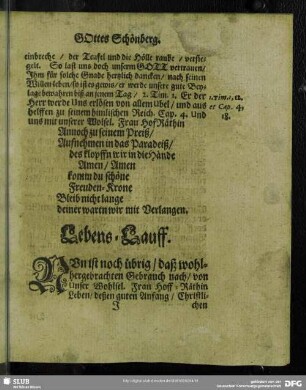 GOttes Schönberg.
einbreche / der Teufel und die Hölle raube / verste-
gelt. So laßt uns doch unserm GOTT vertrauen /
Ihm für solche Gnade hertzlich dancken / nach seinen
Willen leben / so ist es gewiß / er werde unsere gute Bey-
lage bewahren biß an jenem Tag / 2. Tim. 1. Er der
2. Tim. 1, 12.
HErr werde Uns erlösen von allem übel / und aus-
et Cap. 4,
helffen zu seinem himlischen Reich. Cap. 4. Und
18.
uns mit unserer Wolsel. Frau Hof Räthin
Annoch zu seinem Preiß /
Aufnehmen in das Paradeiß /
des klopffn wir in die Hände
Amen / Amen
komm du schöne
Freuden-Krone
Bleib nicht lange
deiner warten wir mit Verlangen.
Lebens-Lauff.
NUn ist noch übrig / daß wohl-
hergebrachten Gebrauch nach / von
Unser Wohlsel. Frau Hoff-Räthin
Leben / deßen guten Anfang / Christli-
J
chen
SLUB